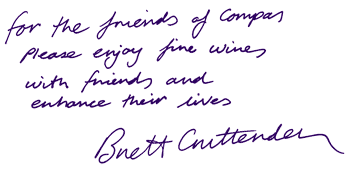 for the friends of Compas
Please enjoy fine wines
with friends and
enhance their lives
Brett Cruttenden